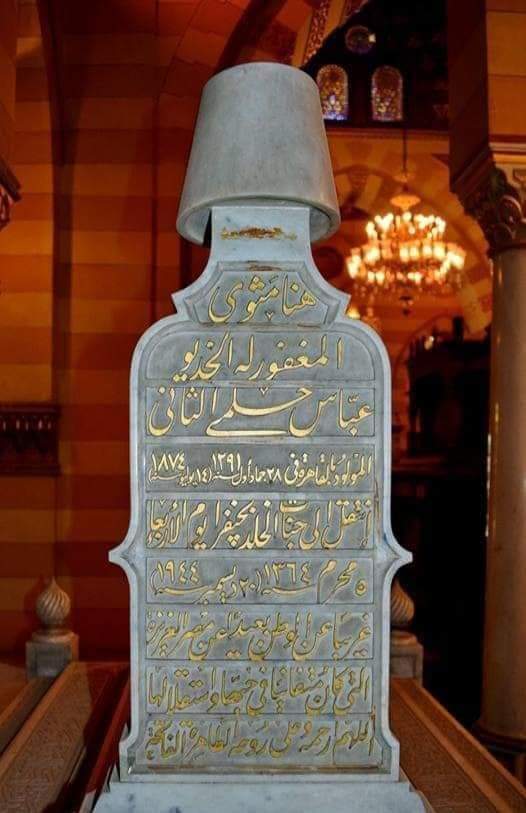 هنا مثوى
المغفور له الخديو
عباس حلمي الثاني
المولود بالقاهرة في ٢٨ جماد أول سنة ١٢٩١ (١٤ يوليو سنة ١٨٧٤)
انتقل إلى جنات الخلد بجنفرا يوم الأربعا
٥ محرم سنة ١٣٦٤ (٢٠ ديسمبر سنة ١٩٤٤)
غريبا عن الوطن بعيدا عن مصر العزيزة
التي كان متفانيا في حبها واستقلالها
اللهم رحمة على روحه الطاهرة الفاتحة